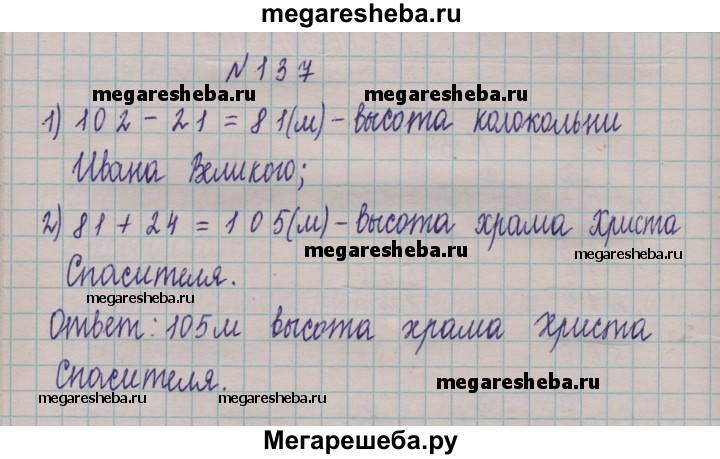 megaresheba.ru
№137
megaresheba.ru megaresheba.ru
1) 102 - 21 = 81(м) - высота колокольни
Ивана Великого;
2) 81 + 24 = 105(м) - высота храма Христа
megaresheba.ru
Спасителя.
megaresheba.ru
Ответ: 105м высота храма Христа
Спасителя.
megaresheba.ru megaresheba.ru megaresheba.ru
Мегарешеба.ру